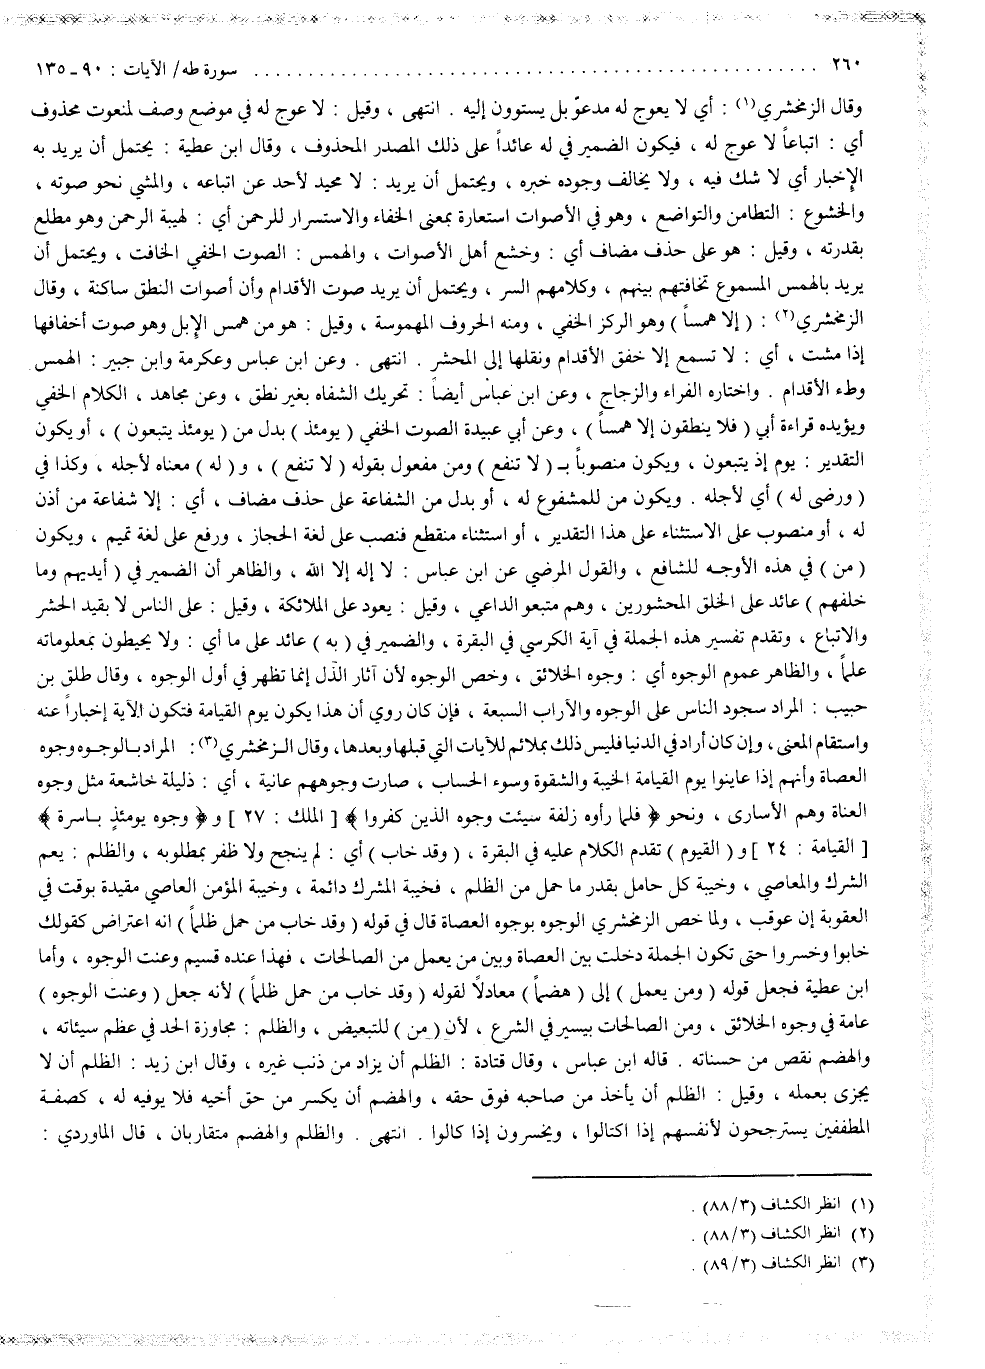 ٢٦٠ ........................................ سورة طه/ الآيات : ٩٠ ـ ١٣٥
وقال الزمخشري(١) : أي لا يعوج له مدعوّ بل يستوون إليه . انتهى ، وقيل : لا عوج له في موضع وصف لمنعوت محذوف
أي : اتباعاً لا عوج له ، فيكون الضمير في له عائداً على ذلك المصدر المحذوف ، وقال ابن عطية : يحتمل أن يريد به
الإخبار أي لا شك فيه ، ولا يخالف وجوده خبره ، ويحتمل أن يريد : لا محيد لأحد عن اتباعه ، والمشي نحو صوته ،
والخشوع : التطامن والتواضع ، وهو في الأصوات استعارة بمعنى الخفاء والاستسرار للرحمن أي : لهيبة الرحمن وهو مطلع
بقدرته ، وقيل : هو على حذف مضاف أي : وخشع أهل الأصوات ، والهمس : الصوت الخفي الخافت ، ويحتمل أن
يريد بالهمس المسموع تخافتهم بينهم ، وكلامهم السر ، ويحتمل أن يريد صوت الأقدام وأن أصوات النطق ساكنة ، وقال
الزمخشري(٢) : ( إلا همساً ) وهو الركز الخفي ، ومنه الحروف المهموسة ، وقيل : هو من همس الإبل وهو صوت أخفافها
إذا مشت ، أي : لا تسمع إلا خفق الأقدام ونقلها إلى المحشر . انتهى . وعن ابن عباس وعكرمة وابن جبير : الهمس
وطء الأقدام . واختاره الفراء والزجاج ، وعن ابن عباس أيضاً : تحريك الشفاه بغير نطق ، وعن مجاهد ، الكلام الخفي
ويؤيده قراءة أبي ( فلا ينطقون إلا همساً ) ، وعن أبي عبيدة الصوت الخفي ( يومئذ ) بدل من ( يومئذ يتبعون ) ، أو يكون
التقدير : يوم إذ يتبعون ، ويكون منصوباً بـ ( لا تنفع ) ومن مفعول بقوله ( لا تنفع ) ، و ( له ) معناه لأجله ، وكذا في
( ورضى له ) أي لأجله . ويكون من للمشفوع له ، أو بدل من الشفاعة على حذف مضاف ، أي : إلا شفاعة من أذن
له ، أو منصوب على الاستثناء على هذا التقدير ، أو استثناء منقطع فنصب على لغة الحجاز ، ورفع على لغة تميم ، ويكون
( من ) في هذه الأوجه للشافع ، والقول المرضي عن ابن عباس : لا إله إلا الله ، والظاهر أن الضمير في ( أيديهم وما
خلفهم ) عائد على الخلق المحشورين ، وهم متبعو الداعي ، وقيل : يعود على الملائكة ، وقيل : على الناس لا بقيد الحشر
والاتباع ، وتقدم تفسير هذه الجملة في آية الكرسي في البقرة ، والضمير في ( به ) عائد على ما أي : ولا يحيطون بمعلوماته
علماً ، والظاهر عموم الوجوه أي : وجوه الخلائق ، وخص الوجوه لأن آثار الذّل إنما تظهر في أول الوجوه ، وقال طلق بن
حبيب : المراد سجود الناس على الوجوه والآراب السبعة ، فإن كان روي أن هذا يكون يوم القيامة فتكون الآية إخباراً عنه
واستقام المعنى ، وإن كان أراد في الدنيا فليس ذلك بملائم للآيات التي قبلها وبعدها ، وقال الـزمخشري(٣): المراد بـالوجـوه وجوه
العصاة وأنهم إذا عاينوا يوم القيامة الخيبة والشقوة وسوء الحساب ، صارت وجوههم عانية ، أي : ذليلة خاشعة مثل وجوه
العناة وهم الأسارى ، ونحو ﴿ فلما رأوه زلفة سيئت وجوه الذين كفروا ﴾ [ الملك : ٢٧ ] و ﴿ وجوه يومئذٍ بـاسرة ﴾
[ القيامة : ٢٤ ] و ( القيوم ) تقدم الكلام عليه في البقرة ، ( وقد خاب ) أي : لم ينجح ولا ظفر بمطلوبه ، والظلم : يعم
الشرك والمعاصي ، وخيبة كل حامل بقدر ما حمل من الظلم ، فخيبة المشرك دائمة ، وخيبة المؤمن العاصي مقيدة بوقت في
العقوبة إن عوقب ، ولما خص الزمخشري الوجوه بوجوه العصاة قال في قوله ( وقد خاب من حمل ظلماً ) انه اعتراض كقولك
خابوا وخسروا حتى تكون الجملة دخلت بين العصاة وبين من يعمل من الصالحات ، فهذا عنده قسيم وعنت الوجوه ، وأما
ابن عطية فجعل قوله ( ومن يعمل ) إلى ( هضماً ) معادلاً لقوله ( وقد خاب من حمل ظلماً ) لأنه جعل ( وعنت الوجوه )
عامة في وجوه الخلائق ، ومن الصالحات بيسير في الشرع ، لأن ( من ) للتبعيض ، والظلم : مجاوزة الحد في عظم سيئاته ،
والهضم نقص من حسناته . قاله ابن عباس ، وقال قتادة : الظلم أن يزاد من ذنب غيره ، وقال ابن زيد : الظلم أن لا
يجزى بعمله ، وقيل : الظلم أن يأخذ من صاحبه فوق حقه ، والهضم أن يكسر من حق أخيه فلا يوفيه له ، كصفـة
المطففين يسترجحون لأنفسهم إذا اكتالوا ، ويخسرون إذا كالوا . انتهى . والظلم والهضم متقاربان ، قال الماوردي :
(١) انظر الكشاف (٨٨/٣) .
(٢) انظر الكشاف (٨٨/٣) .
(٣) انظر الكشاف (٨٩/٣) .